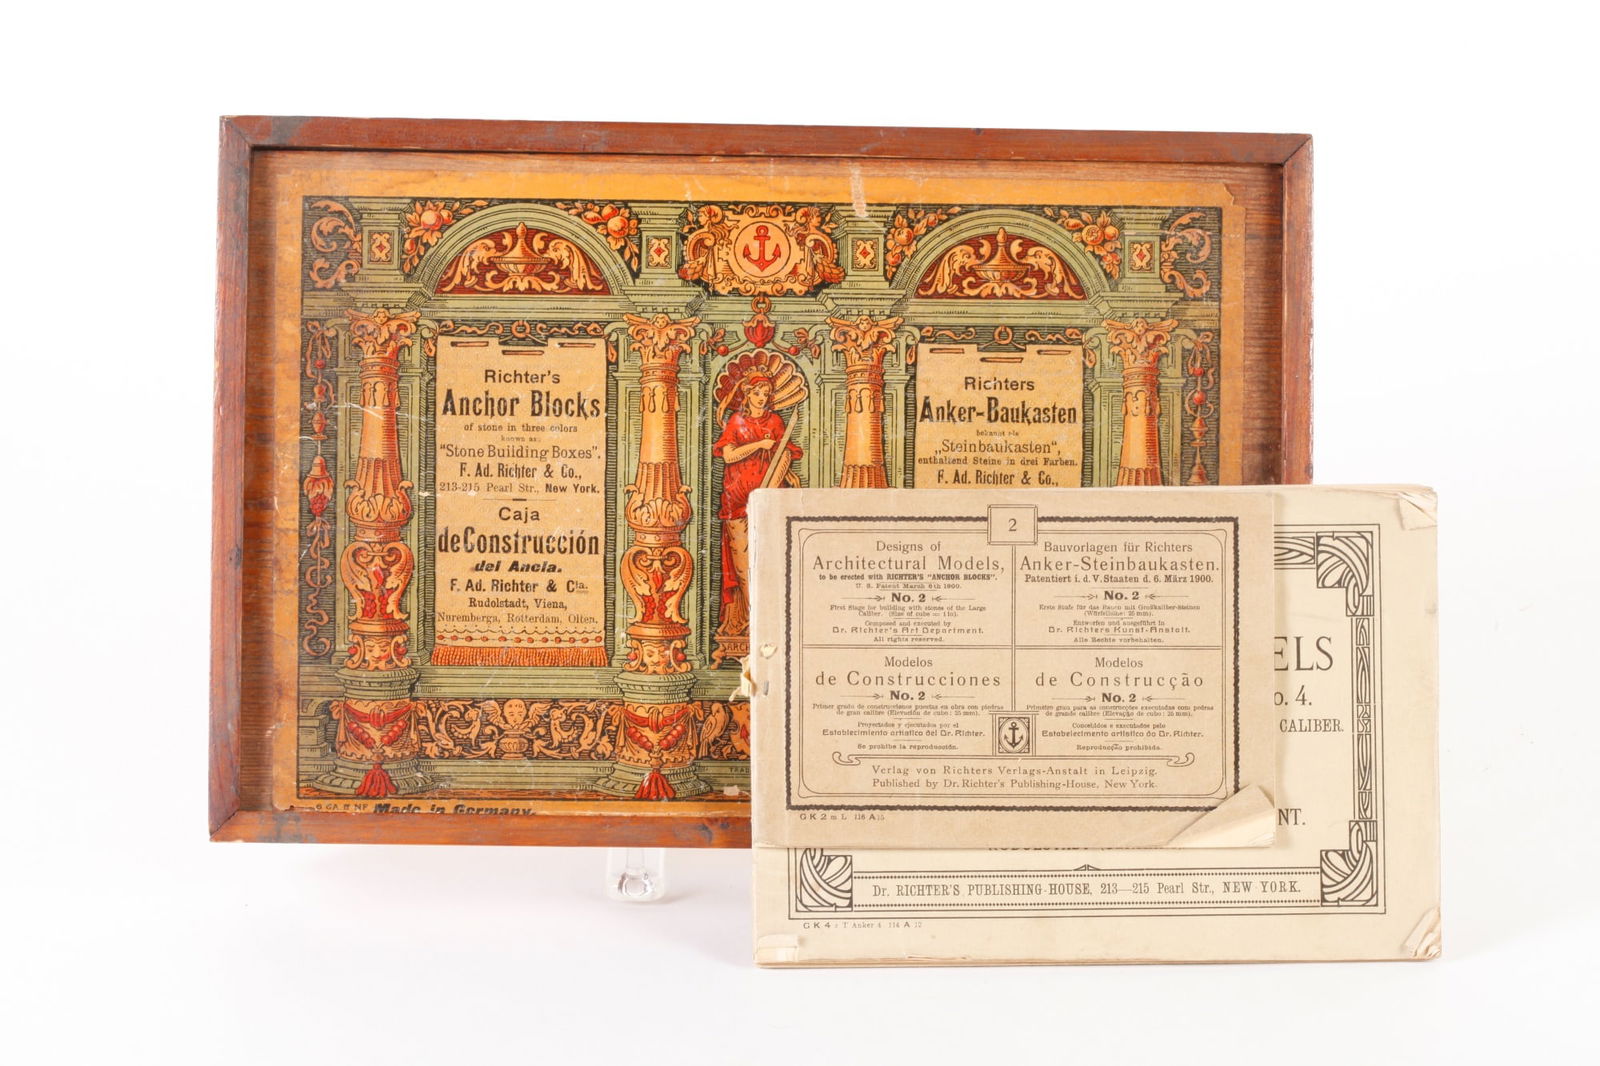 Richter's
Anchor Blocks
of stone in three colors
known as:
"Stone Building Boxes".
F. Ad. Richter & Co.,
213-215 Pearl Str., New York.
Caja
de Construcción
del Ancla.
F. Ad. Richter & Cia.
Rudolstadt, Viena,
Nuremberga, Rotterdam, Olten.
Richters
Anker-Baukasten
bekannt als
„Steinbaukasten",
enthaltend Steine in drei Farben.
F. Ad. Richter & Co.,
ARCH
TRAD
6 GA II NF Made in Germany.
2
Designs of
Architectural Models,
to be erected with RICHTER'S "ANCHOR BLOCKS".
U. S. Patent March 6th 1900.
No. 2
First Stage for building with stones of the Large
Caliber. (Size of cube = 1 in).
Composed and executed by
Dr. Richter's Art Department.
All rights reserved.
Bauvorlagen für Richters
Anker-Steinbaukasten.
Patentiert i. d. V. Staaten d. 6. März 1900.
No. 2
Erste Stufe für das Bauen mit Großkaliber-Steinen
(Würfelhöhe: 25 mm).
Entworfen und ausgeführt in
Dr. Richters Kunst-Anstalt.
Alle Rechte vorbehalten.
Modelos
de Construcciones
No. 2
Primer grado de construcciones puestas en obra con piedras
de gran calibre (Elevación de cubo: 25 mm).
Proyectados y ejecutados por el
Establecimiento artístico del Dr. Richter.
Se prohibe la reproducción.
Modelos
de Construcção
No. 2
Primeiro grau para as construcções executadas com pedras
de grande calibre (Elevação de cubo: 25 mm).
Concebidos e executados pelo
Estabelecimento artistico do Dr. Richter.
Reproducção prohibida.
Verlag von Richters Verlags-Anstalt in Leipzig.
Published by Dr. Richter's Publishing-House, New York.
G K 2 m L 116 A 15
ELS
o. 4.
CALIBER.
NT.
Dr. RICHTER'S PUBLISHING-HOUSE, 213—215 Pearl Str., NEW YORK.
G K 4 r T Anker 4 114 A 12